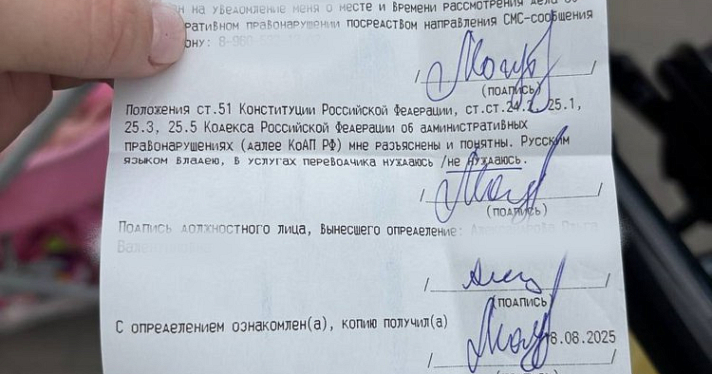 на уведомление меня о месте и времени рассмотрения дела об
административном правонарушении посредством направления СМС-сообщения
ону: 8-980
(подпись)
Положения ст.51 Конституции Российской Федерации, ст.ст.24.2, 25.1,
25.3, 25.5 Кодекса Российской Федерации об административных
правонарушениях (далее КоАП РФ) мне разъяснены и понятны. Русским
языком владею, в услугах переводчика нуждаюсь /не нуждаюсь.
(подпись)
Подпись должностного лица, вынесшего определение:
(подпись)
С определением ознакомлен(а), копию получил(а)
8.08.2025